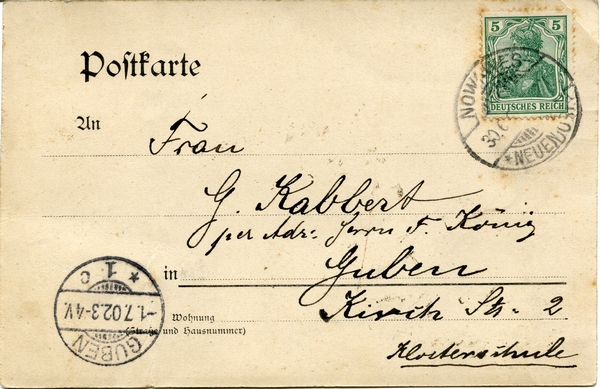 5 5
DEUTSCHES REICH
Postkarte
NOWAWES
* NEUENDORF
30.6
An
Frau
G. Kabbert
per Adr: Herrn F. König
in Guben
Kirch Str. 2
Wohnung
(Straße und Hausnummer)
Klosterschule
GUBEN
* 1 c
-1.7.02.3-4V.